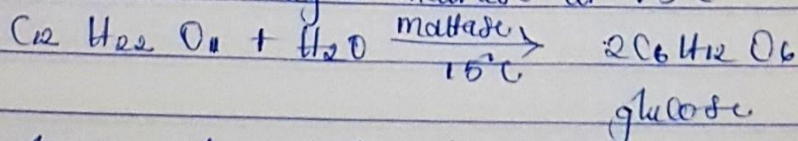 C12 H22 O11 + H2O maltase → 2C6 H12 O6
15°C
glucose